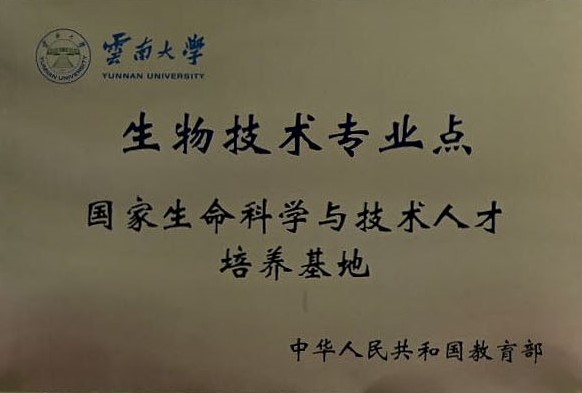 雲南大學
YUNNAN UNIVERSITY
生物技术专业点
国家生命科学与技术人才
培养基地
中华人民共和国教育部